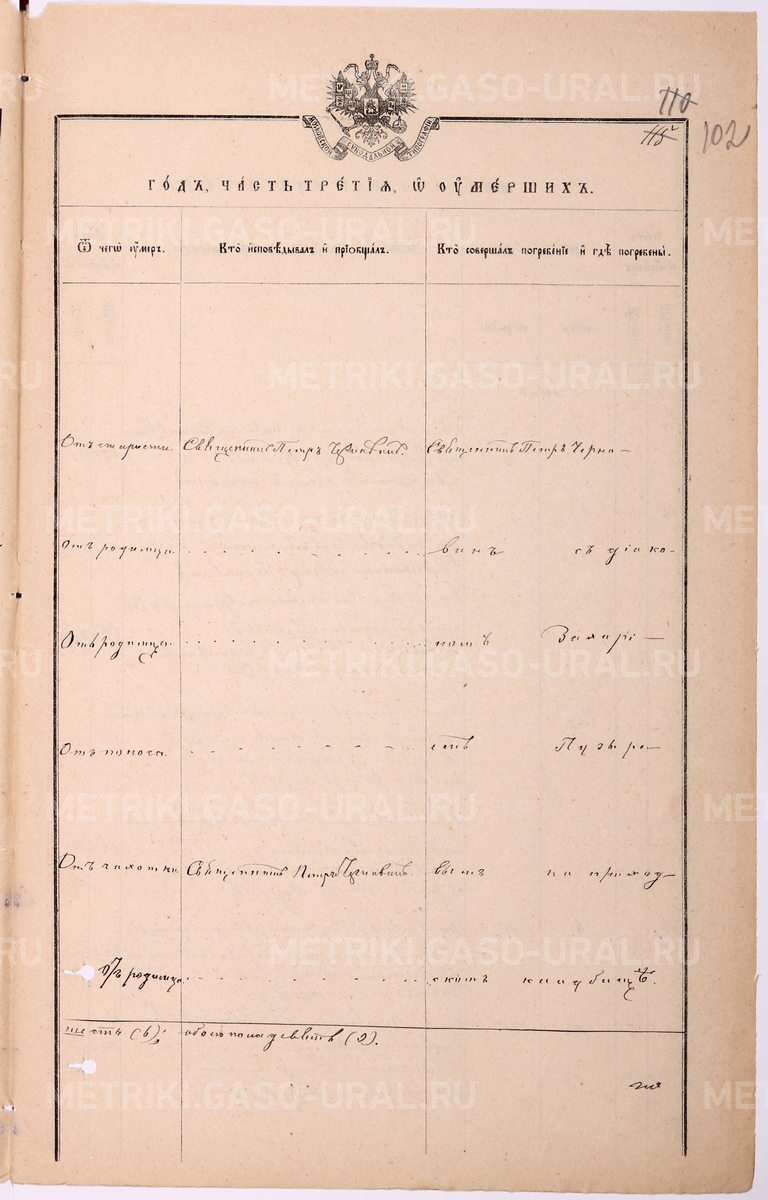 110
115
102
МОСКОВСКОЙ СѴНОДАЛЬНОЙ ТИПОГРАФІИ
ГО́ДЪ, ЧА́СТЬ ТРЕ́ТІѦ, Ѿ ОУ҆МЕ́РШИХЪ.
Ѿ чегѡ̀ ᲂу҆́меръ. Кто̀ и҆сповѣ́дывалъ и҆ прїѡбща́лъ. Кто̀ соверша́лъ погребе́нїе и҆ гдѣ̀ погребены̀.
Отъ старости. Священникъ Петръ Чернавинъ. Священникъ Петръ Черна-
Отъ родимца. винъ съ діако-
Отъ родимца. номъ Захарі-
Отъ поноса. емъ Пузыре-
Отъ чахотки Священникъ Петръ Чернавинъ. вымъ на приход-
Отъ родимца. скомъ кладбищѣ.
шесть (6); обоего пола девять (9).
METRIKI.GASO-URAL.RU